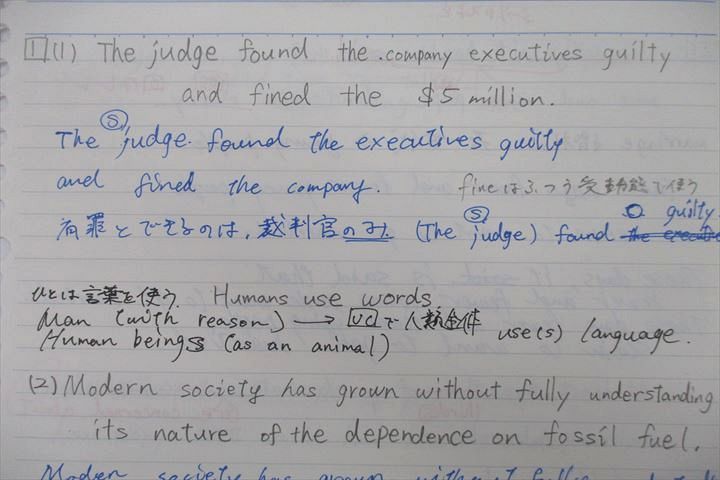 1 (1) The judge found the company executives guilty
and fined the $5 million.
The judge found the executives guilty
S
and fined the company. fineはふつう受動態で使う
有罪とできるのは、裁判官のみ (The judge) found O guilty
S
ひとは言葉を使う. Humans use words.
Man (with reason) → UCで人類全体
Human beings (as an animal) use(s) language.
(2) Modern society has grown without fully understanding
its nature of the dependence on fossil fuel.
Modern society has grown without fully